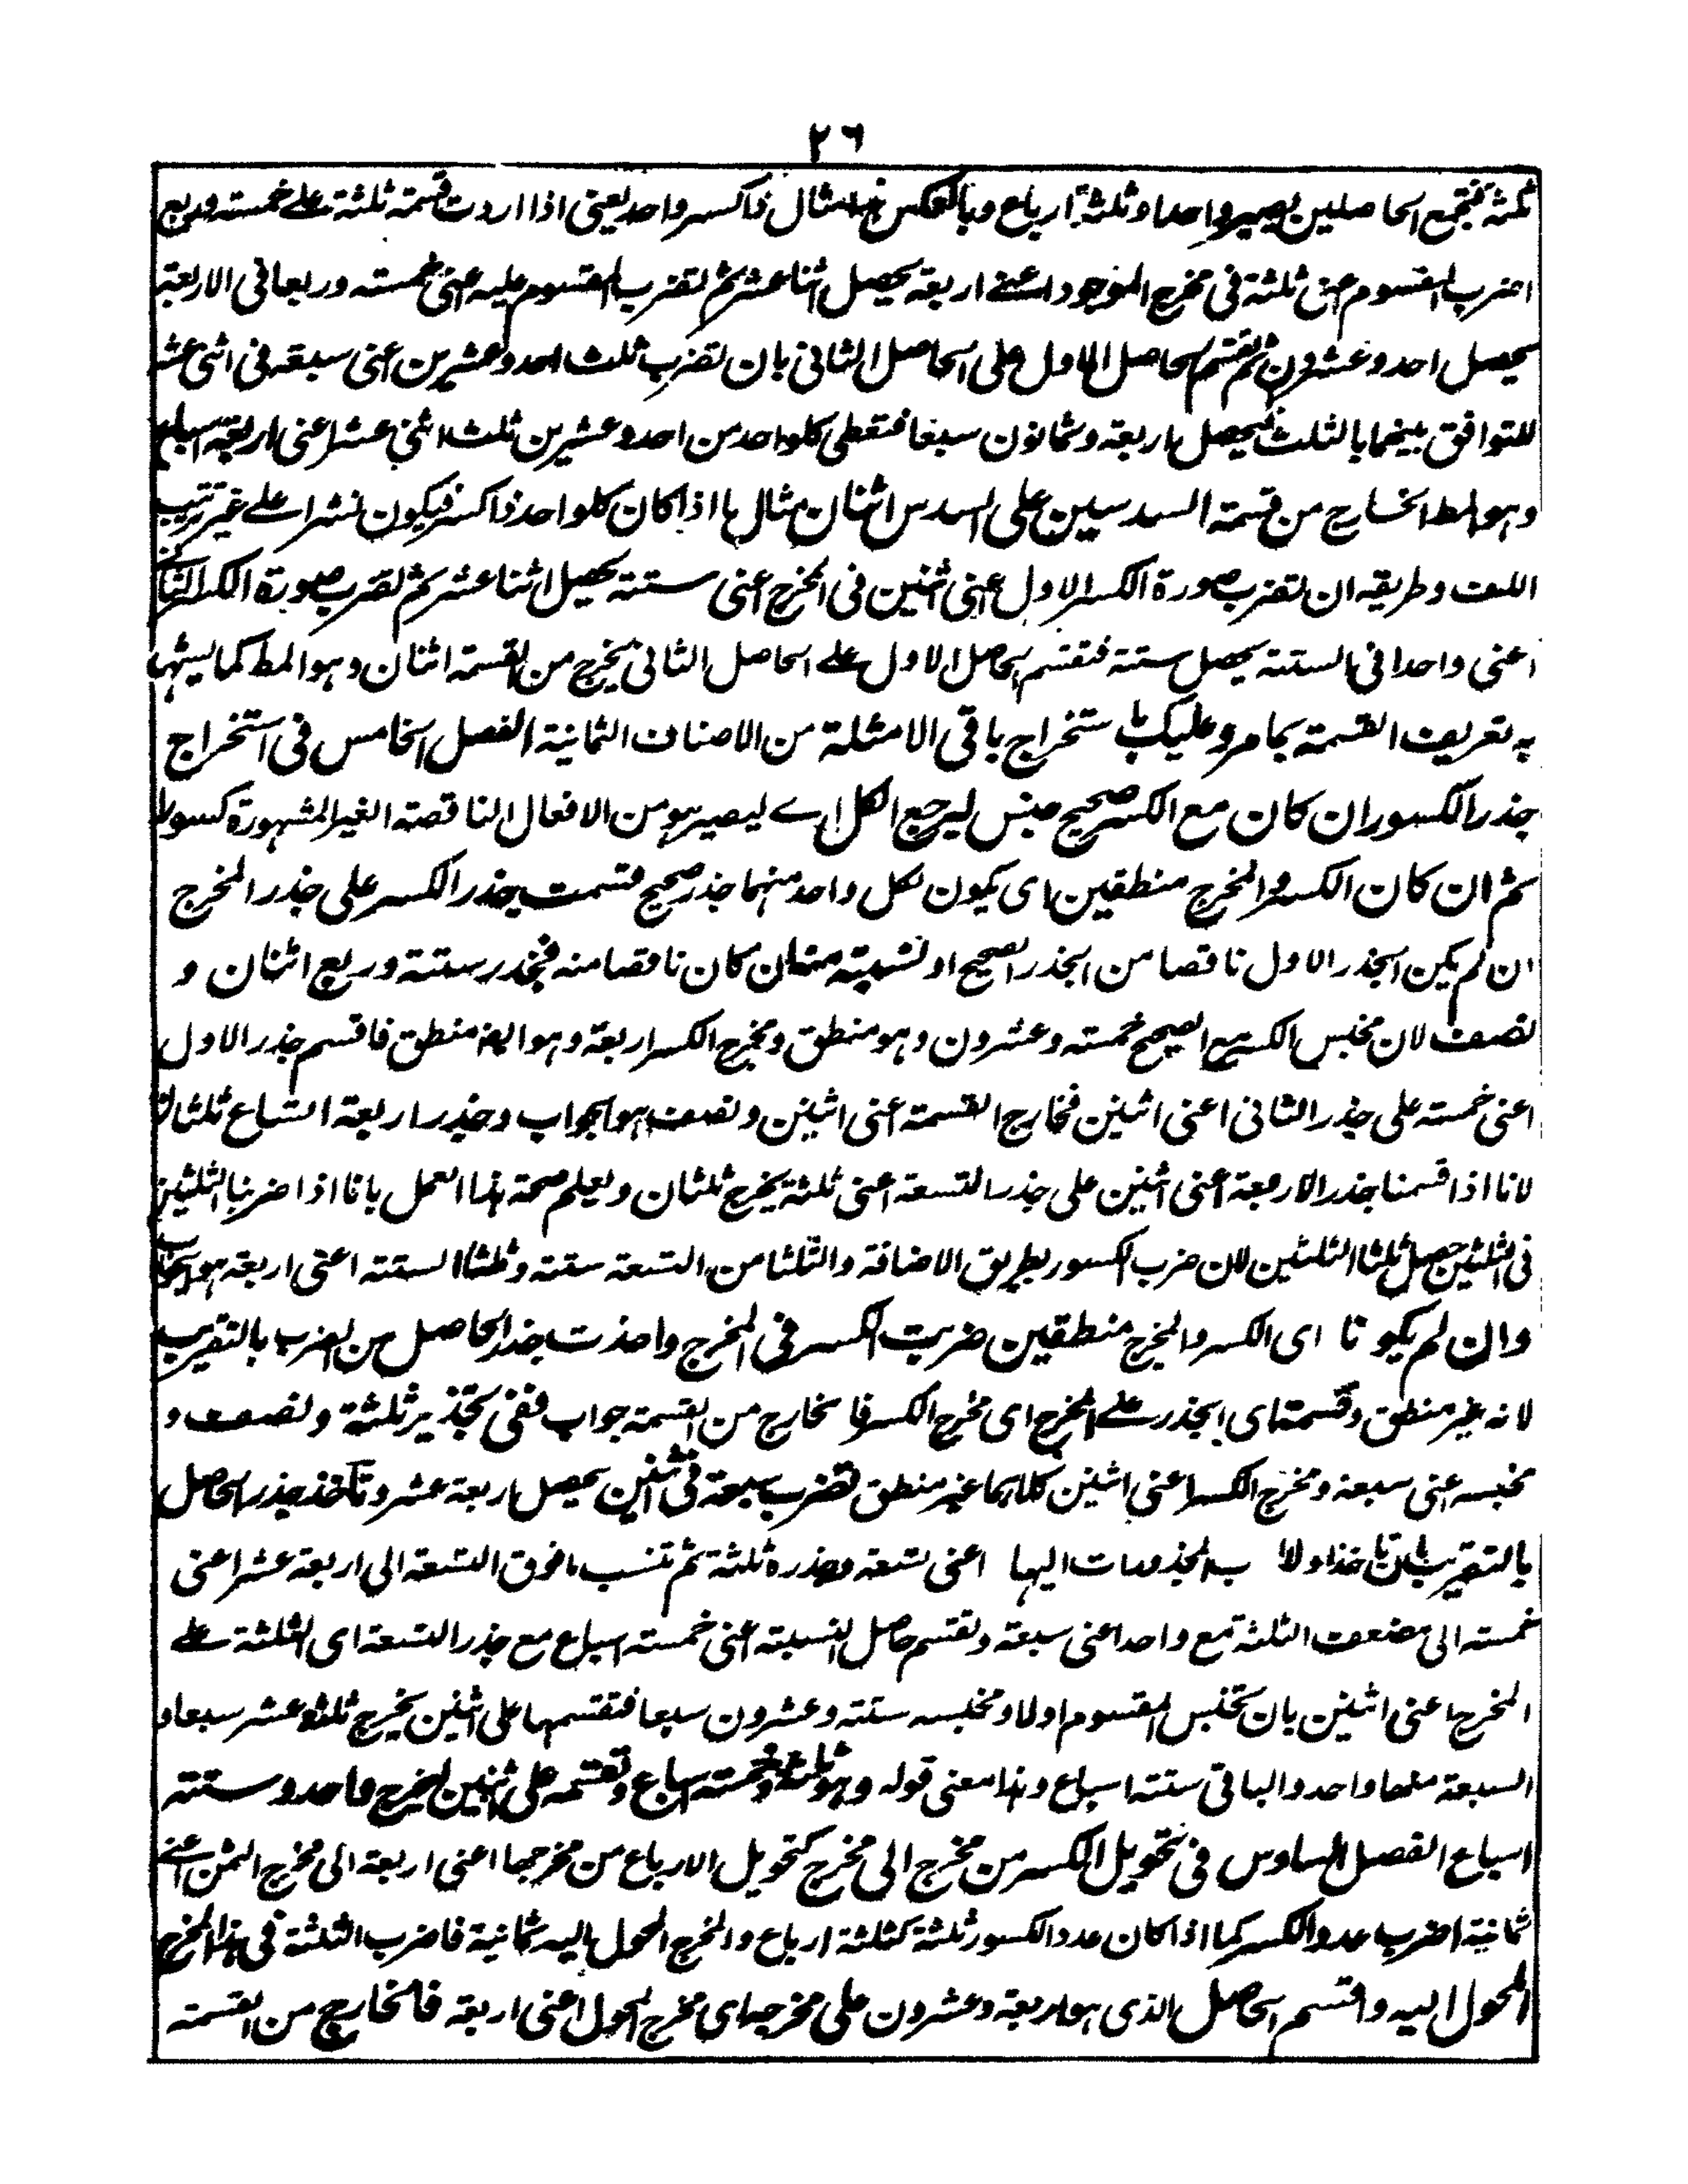 ٢٦
ثلثة فتجمع الحاصلين يصير واحدا وثلثة ارباع وبالعكس هذا مثال ذا كسر واحد يعنى اذا اردت قسمة ثلثة على خمسة وربع
اضرب المقسوم اعنى ثلثة فى مخرج الموجود اعنى اربعة يحصل اثنا عشر ثم تضرب المقسوم عليه اعنى خمسة وربعا فى الاربعة
يحصل احد وعشرون ثم تقسم الحاصل الاول على الحاصل الثانى بان تضرب ثلث احد وعشرين اعنى سبعة فى اثنى عشر
للتوافق بينهما بالثلث فيحصل اربعة وثمانون سبعا فتعطى كلواحد من احد وعشرين ثلث اثنى عشر اعنى اربعة اسباع
وهو المط الخارج من قسمة السدسين على السدس اثنان مثال ما اذا كان كلواحد ذا كسر فيكون نشرا على غير ترتيب
اللف وطريقه ان تضرب صورة الكسر الاول اعنى اثنين فى المخرج اعنى ستة يحصل اثنا عشر ثم تضرب صورة الكسر الثانى
اعنى واحدا فى الستة يحصل ستة فتقسم الحاصل الاول على الحاصل الثانى يخرج من القسمة اثنان وهو المط كما يشهد
به تعريف القسمة بما مر وعليك باستخراج باقى الامثلة من الاصناف الثمانية الفصل الخامس فى استخراج
جذر الكسور ان كان مع الكسر صحيح جنس ليرجع الكل اے ليصير هو من الافعال الناقصة الغير المشهورة كسورا
ثم ان كان الكسر والمخرج منطقين اى يكون لكل واحد منهما جذر صحيح قسمت جذر الكسر على جذر المخرج
ان لم يكن الجذر الاول ناقصا من الجذر الصحيح او نسبته منه ان كان ناقصا منه فجذر ستة وربع اثنان و
نصف لان مجنس الكسر مع الصحيح خمسة وعشرون وهو منطق ومخرج الكسر اربعة وهو ايضا منطق فاقسم جذر الاول
اعنى خمسة على جذر الثانى اعنى اثنين فخارج القسمة اعنى اثنين ونصف هو الجواب وجذر اربعة اتساع ثلثان
لانا اذا قسمنا جذر الاربعة اعنى اثنين على جذر التسعة اعنى ثلثة يخرج ثلثان ويعلم صحة هذا العمل بانا اذا ضربنا الثلثين
فى الثلثين حصل ثلثا الثلثين لان ضرب الكسور بطريق الاضافة والثلثا من التسعة ستة وثلثا الستة اعنى اربعة هو الجواب
وان لم يكونا اى الكسر والمخرج منطقين ضربت الكسر فى المخرج واخذت جذر الحاصل من الضرب بالتقريب
لانه غير منطق وقسمته اى الجذر على المخرج اى مخرج الكسر فالخارج من القسمة جواب ففى تجذير ثلثة ونصف و
مجنسه اعنى سبعة ومخرج الكسر اعنى اثنين كلاهما غير منطق تضرب سبعة فى اثنين يحصل اربعة عشر وتأخذ جذر الحاصل
بالتقريب بان تاخذ اولا اقرب المجذورات اليها اعنى تسعة وجذره ثلثة ثم تنسب مافوق التسعة الى اربعة عشر اعنى
خمسة الى مضعف الثلثة مع واحد اعنى سبعة وتقسم حاصل النسبة اعنى خمسة اسباع مع جذر التسعة اى الثلثة على
المخرج اعنى اثنين بان تجنس المقسوم اولا ومجنسه ستة وعشرون سبعا فتقسمها على اثنين يخرج ثلثة عشر سبعا و
السبعة منها واحد والباقى ستة اسباع وهذا معنى قوله وهو ثلثة وخمسة اسباع وتقسمه على اثنين ليخرج واحد وستة
اسباع الفصل السادس فى تحويل الكسر من مخرج الى مخرج كتحويل الارباع من مخرجها اعنى اربعة الى مخرج الثمن اعنى
ثمانية اضرب عدد الكسر كما اذا كان عدد الكسور ثلثة كثلثة ارباع والمخرج المحول اليه ثمانية فاضرب الثلثة فى هذا المخرج
المحول اليه واقسم الحاصل الذى هو اربعة وعشرون على مخرجه اى مخرج المحول اعنى اربعة فالخارج من القسمة